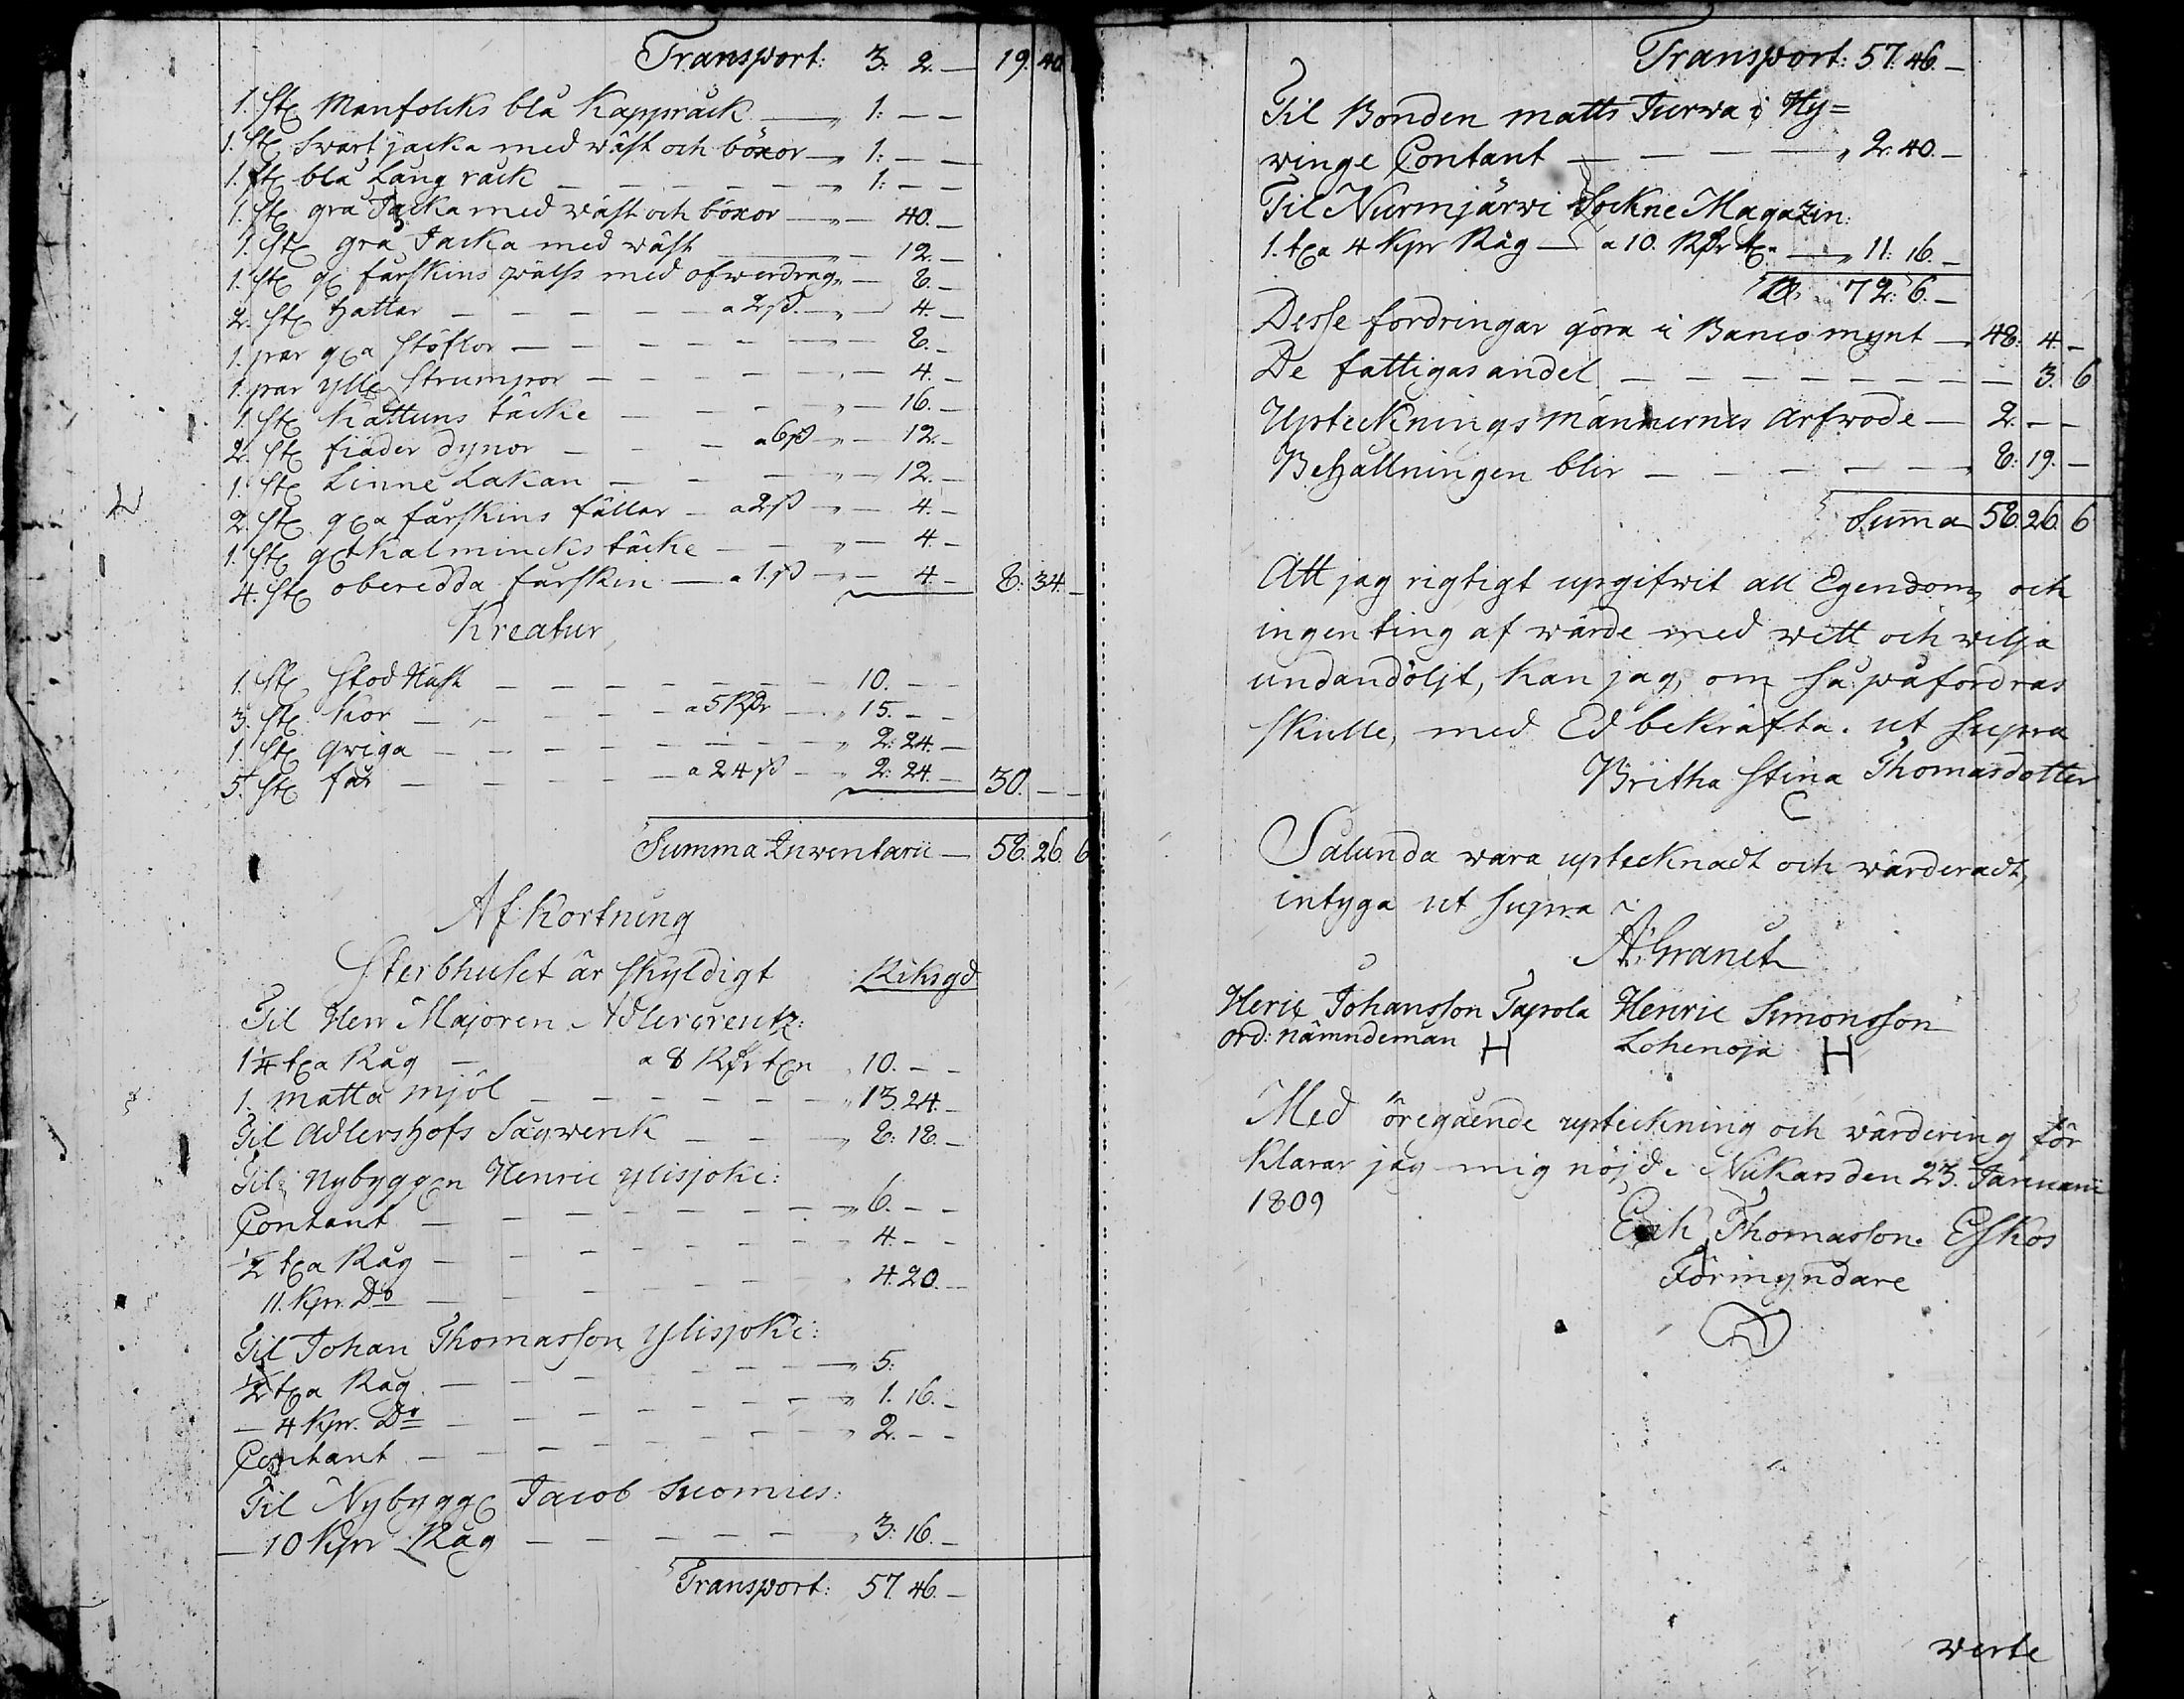 Transport: 3. 2. — 19. 40
1. st Manfolcks blå Kappråck — 1: — —
1. st Svart jacka med wäst och böxor — 1: — —
1. st blå Lång råck — 1: — —
1. st grå Jacka med wäst och böxor — 40. —
1. st grå Jacka med wäst — 12. —
1. st g fårskins pälss med ofwerdrag — 8. —
2. st Hattar — a 2 ß — 4. —
1. par gla Stöflor — 8. —
1. par ylle Strumpor — 4. —
1. st Kattuns täcke — 16. —
2. st fiäder dynor — a 6 ß — 12. —
1. st Linne Lakan — 12. —
2. st gla fårskins fällar — a 2 ß — 4. —
1. st gt Kalmincks täcke — 4. —
4. st oberedda fårskin — a 1. ß — 4. — 8: 34. —
Kreatur
1. st Stod Häst — 10. — —
3. st Kor — a 5 Rdr — 15. — —
1. st Qwiga — 2: 24. —
5. st får — a 24 ß — 2: 24. — 30. — —
Summa Inventarii — 58. 26. 6
Afkortning
Sterbhuset är skyldigt Riksgd
Til Herr Majoren Adlercreutz:
1¼ t:a Råg — a 8 Rdr t:n 10. — —
1. matta mjöl — 13. 24. —
Til Adlershofs Sågwerck — 8: 18. —
Til Nybyggen Henric Ylisjoki:
Contant — 6. — —
½ t:a Råg — 4. — —
11. Kpr. Do — 4. 20. —
Til Johan Thomasson Ylisjoki:
½ t:a Råg — 5:
— 4 Kpr. Do — 1. 16. —
Contant — 2. — —
Til Nybygg Jacob Suomies:
— 10 Kpr Råg — 3: 16. —
Transport: 57. 46. —
Transport: 57. 46. —
Til Bonden matts Turwa i Hy=
winge Contant — 2: 40. —
Til Nurmjärwi Sockne Magazin:
1. t:a 4 Kpr Råg — a 10. Rdr t:n — 11: 16. —
72: 6. —
Desse fordringar göra i Banco mynt — 48: 4. —
De fattigas andel — 3. 6
Uptecknings männernes arfwode — 2. — —
Behållningen blir — 8: 19. —
Summa 58. 26. 6
Att jag rigtigt upgifwit all Egendom, och
ingenting af wärde med wett och wilja
undandöljt, kan jag, om så påfordras
skulle, med Ed bekräfta. ut supra
Britha Stina Thomasdotter
Sålunda wara uptecknadt och wärderadt,
intyga ut supra
A. Granet
Heric Johansson Tapola Henric Simonsson
ord: nämndeman H Lohenoja H
Med öregående upteckning och wärdering för
klarar jag mig nöjd. Nukars den 23. Januarii
1809
Erik Thomasson. Eskos
Förmyndare
verte